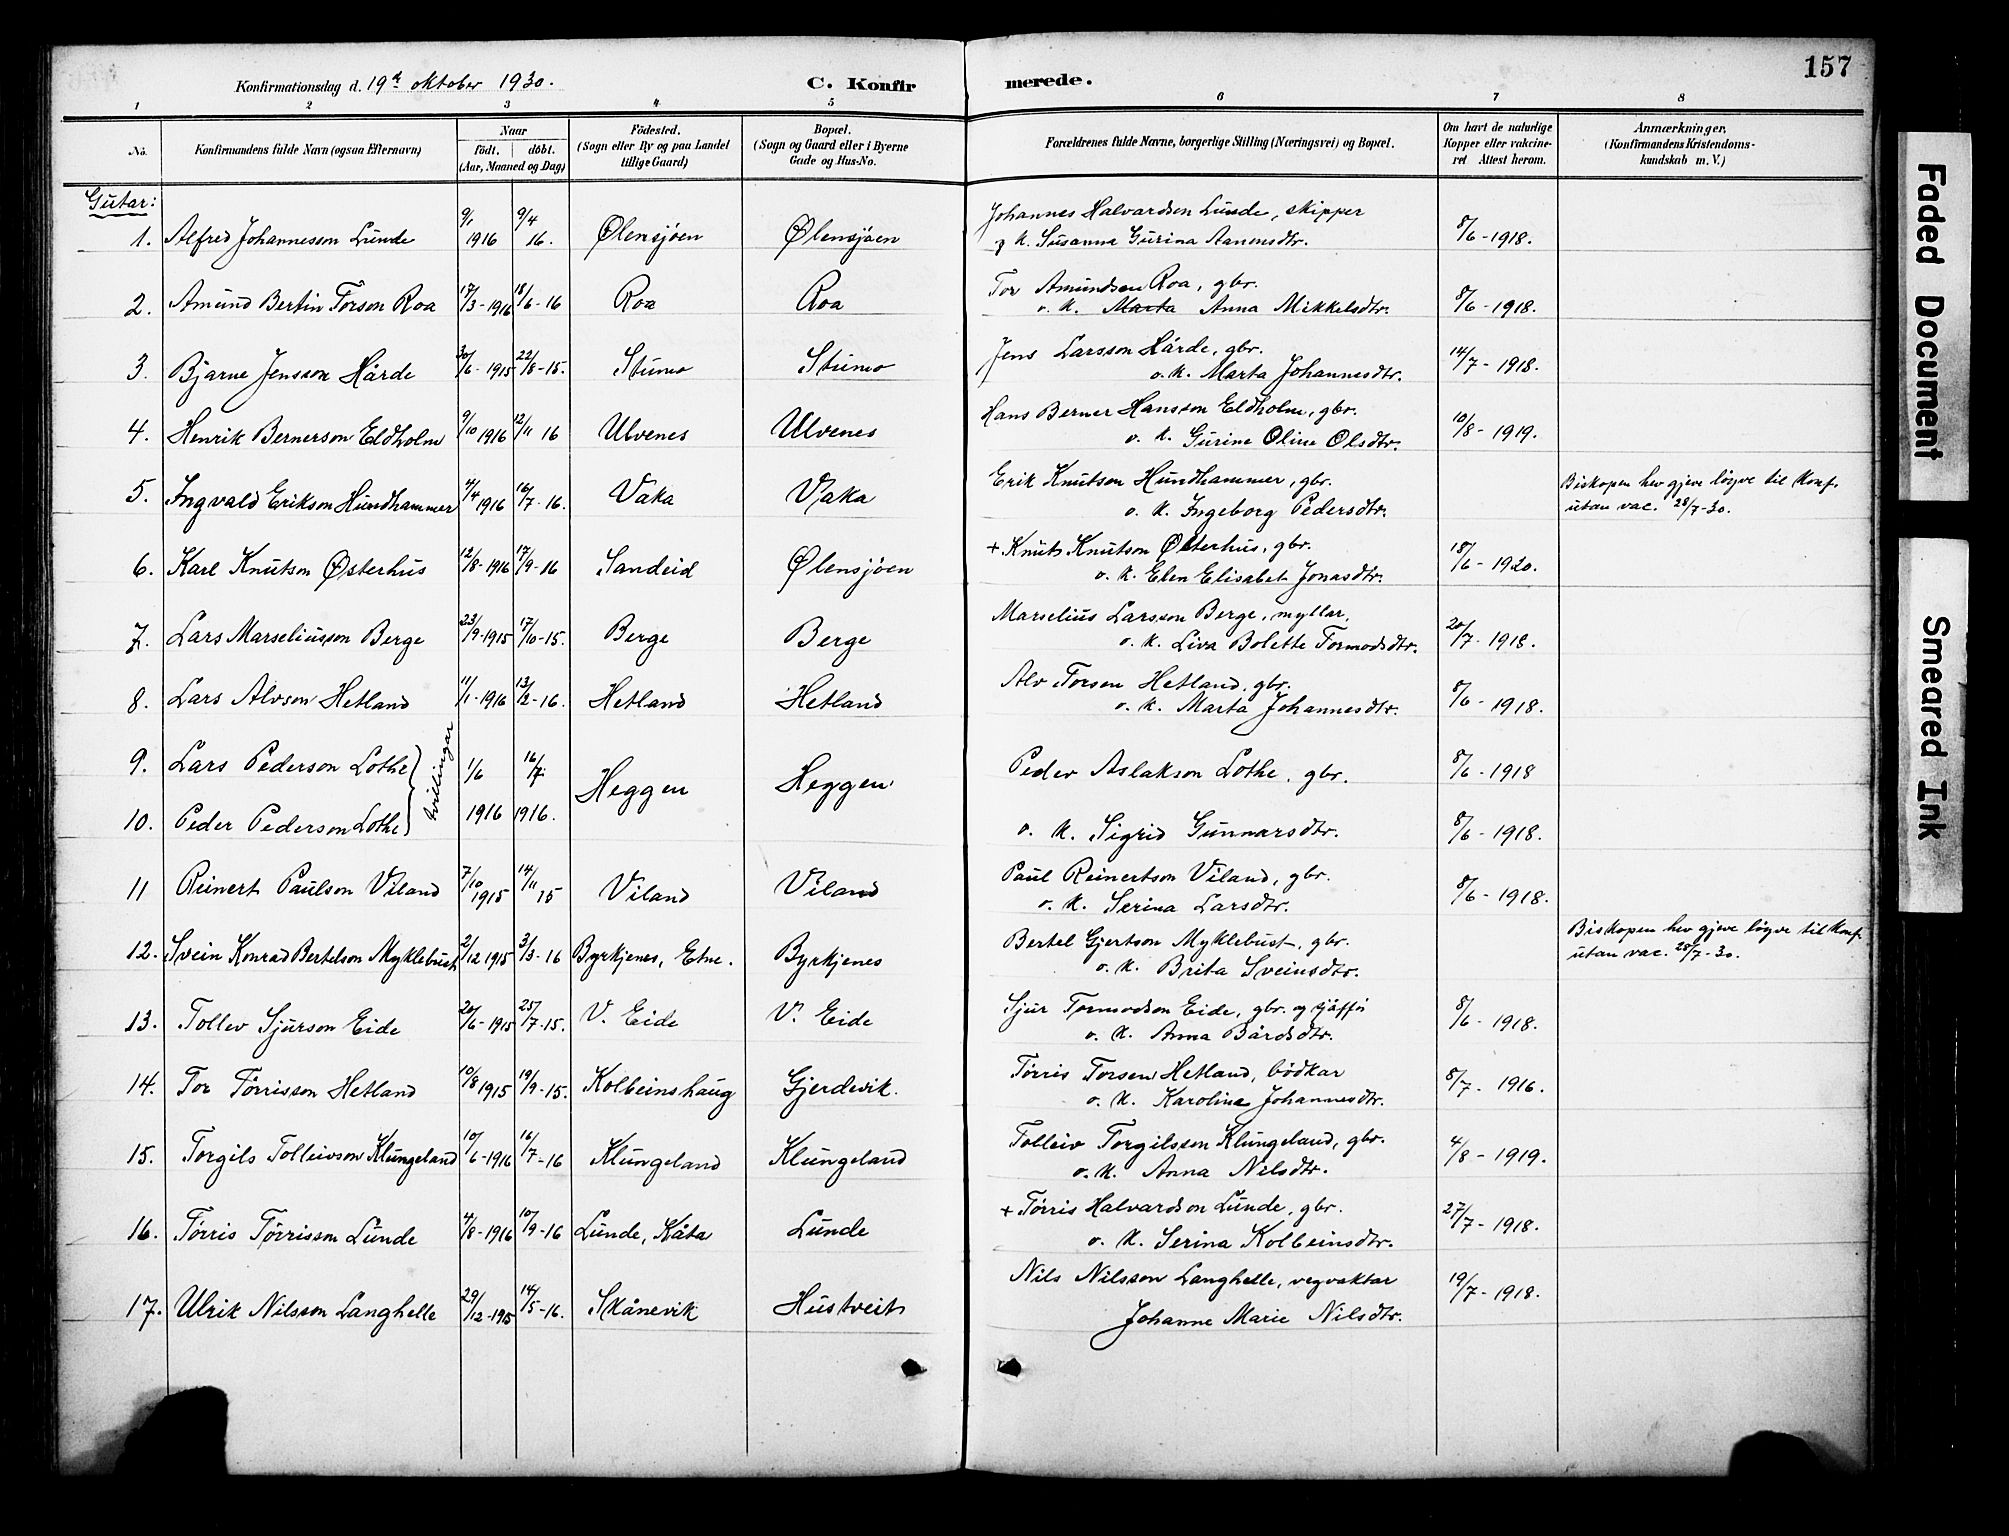 157
Konfirmationsdag d. 19de oktober 1930.
C. Konfirmerede.
1 2 3 4 5 6 7 8
No.
Konfirmandens fulde Navn (ogsaa Efternavn)
Naar
födt. döbt.
(Aar, Maaned og Dag)
Födested.
(Sogn eller By og paa Landet
tillige Gaard)
Bopæl.
(Sogn og Gaard eller i Byerne
Gade og Hus-No.
Forældrenes fulde Navne, borgerlige Stilling (Næringsvei) og Bopæl.
Om havt de naturlige
Kopper eller vakcine-
ret Attest herom.
Anmærkninger.
(Konfirmandens Kristendoms-
kundskab m. V.)
Gutar:
1. Alfred Johannesson Lunde 9/1 1916 9/4 16. Ølensjøen Ølensjøen Johannes Halvardsen Lunde, skipper
o. k. Susanna Gurina Aanensdtr. 8/6 - 1918.
2. Amund Bertin Torson Roa 17/3 - 1916 18/6 - 16 Roa Roa Tor Amundsen Roa, gbr.
o. k. Marta Anna Mikkelsdtr. 8/6 - 1918.
3. Bjarne Jensson Hårde 30/6 - 1915 22/8 - 15. Stumo Stumo Jens Larsson Hårde, gbr.
o. k. Marta Johannesdtr. 14/7 - 1918.
4. Henrik Bernerson Eldholm 9/10 1916 12/11 16 Ulvenes Ulvenes Hans Berner Hansson Eldholm, gbr.
o. k. Gurine Oline Olsdtr. 10/8 - 1919.
5. Ingvald Erikson Hundhammer 4/4 1916 16/7 - 16. Vaka Vaka Erik Knutson Hundhammer, gbr.
o. k. Ingeborg Pedersdtr.
Biskopen hev gjeve löyve til konf.
utan vac. 28/7 - 30.
6. Karl Knutson Østerhus 12/8 - 1916 17/9 - 16 Sandeid Ølensjøen + Knut Knutson Østerhus, gbr.
o. k. Elen Elisabet Jonasdtr. 18/6 - 1920.
7. Lars Marseliusson Berge 23/9 - 1915 17/10 - 15. Berge Berge Marselius Larsson Berge, myllar,
o. k. Liva Bolette Tormodsdtr. 20/7 - 1918.
8. Lars Alvson Hetland 11/1 - 1916 13/2 - 16. Hetland Hetland Alv Torsen Hetland, gbr.
o. k. Marta Johannesdtr. 8/6 - 1918.
9. Lars Pederson Lothe 1/6 16/7. Heggen Heggen Peder Aslakson Lothe, gbr. 8/6 - 1918
tvillingar
10. Peder Pederson Lothe 1916 1916. o. k. Sigrid Gunnarsdtr. 8/6 - 1918.
11 Reinert Paulson Viland 7/10 1915 14/11 15 Viland Viland Paul Reinertson Viland, gbr.
o. k. Serina Larsdtr. 8/6 - 1918.
12. Svein Konrad Bertelson Myklebust 2/12 1915 3/3 - 16 Byrkjenes, Etne. Byrkjenes Bertel Gjertson Myklebust, gbr.
o. k. Brita Sveinsdtr.
Biskopen hev gjeve löyve til konf.
utan vac. 28/7 - 30.
13. Tollev Sjurson Eide 20/6 - 1915 25/7 - 15. V. Eide V. Eide Sjur Tormodson Eide, gbr. og sjåffør
o. k. Anna Bårdsdtr. 8/6 - 1918.
14. Tor Tørrisson Hetland 10/8 1915 19/9 - 15. Kolbeinshaug Gjerdevik. Tørris Torsen Hetland, bødkar
o. k. Karolina Johannesdtr. 8/7 - 1916.
15. Torgils Tolleivson Klungeland 10/6 - 1916 16/7 - 16 Klungeland Klungeland Tolleiv Torgilsson Klungeland, gbr.
o. k. Anna Nilsdtr. 4/8 - 1919.
16. Tørris Tørrisson Lunde 4/8 - 1916 10/9 - 16 Lunde, Kåta Lunde + Tørris Halvardson Lunde, gbr.
o. k. Serina Kolbeinsdtr. 27/7 - 1918.
17. Ulrik Nilsson Langhelle 29/12 - 1915 14/5 - 16. Skånevik Hustveit Nils Nilsson Langhelle, vegvaktar
Johanne Marie Nilsdtr. 19/7 - 1918.
Faded Document
Smeared Ink